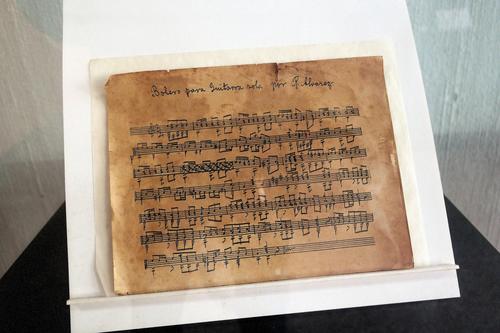 Bolero para Guitarra sola por P. Alvarez